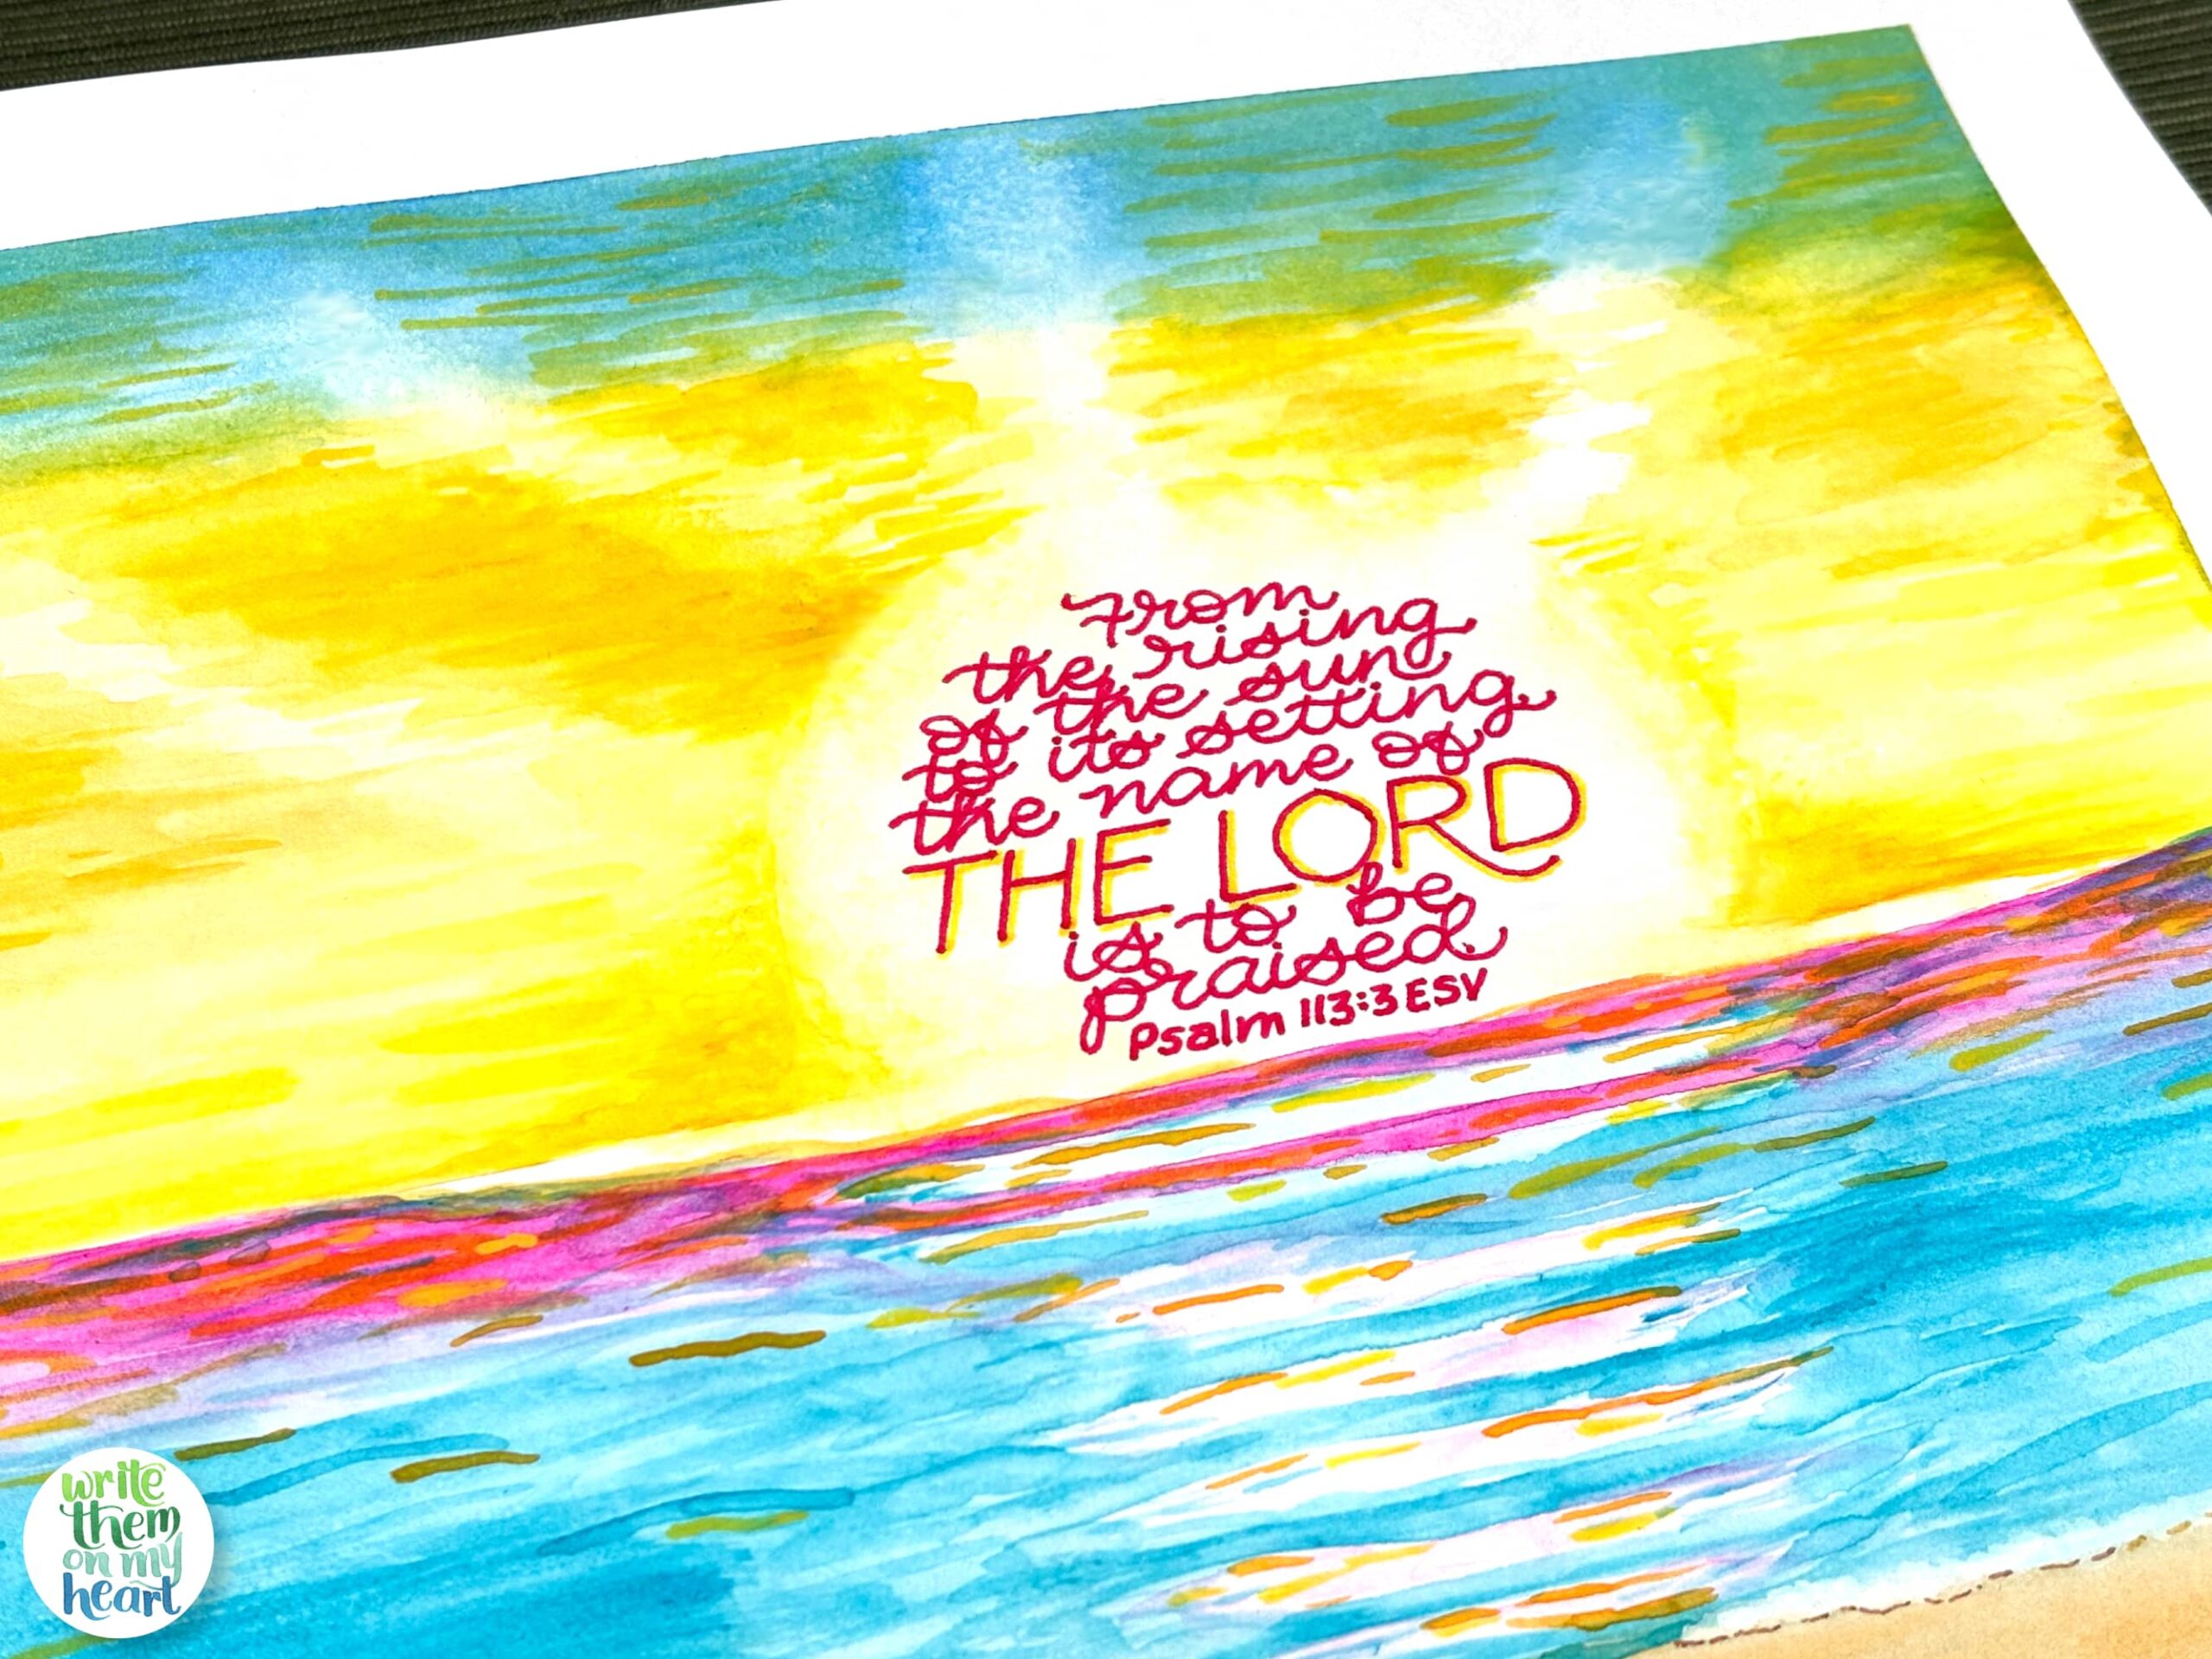 From
the rising
of the sun
to its setting,
the name of
THE LORD
is to be
praised.
Psalm 113:3 ESV
write
them
on my
heart